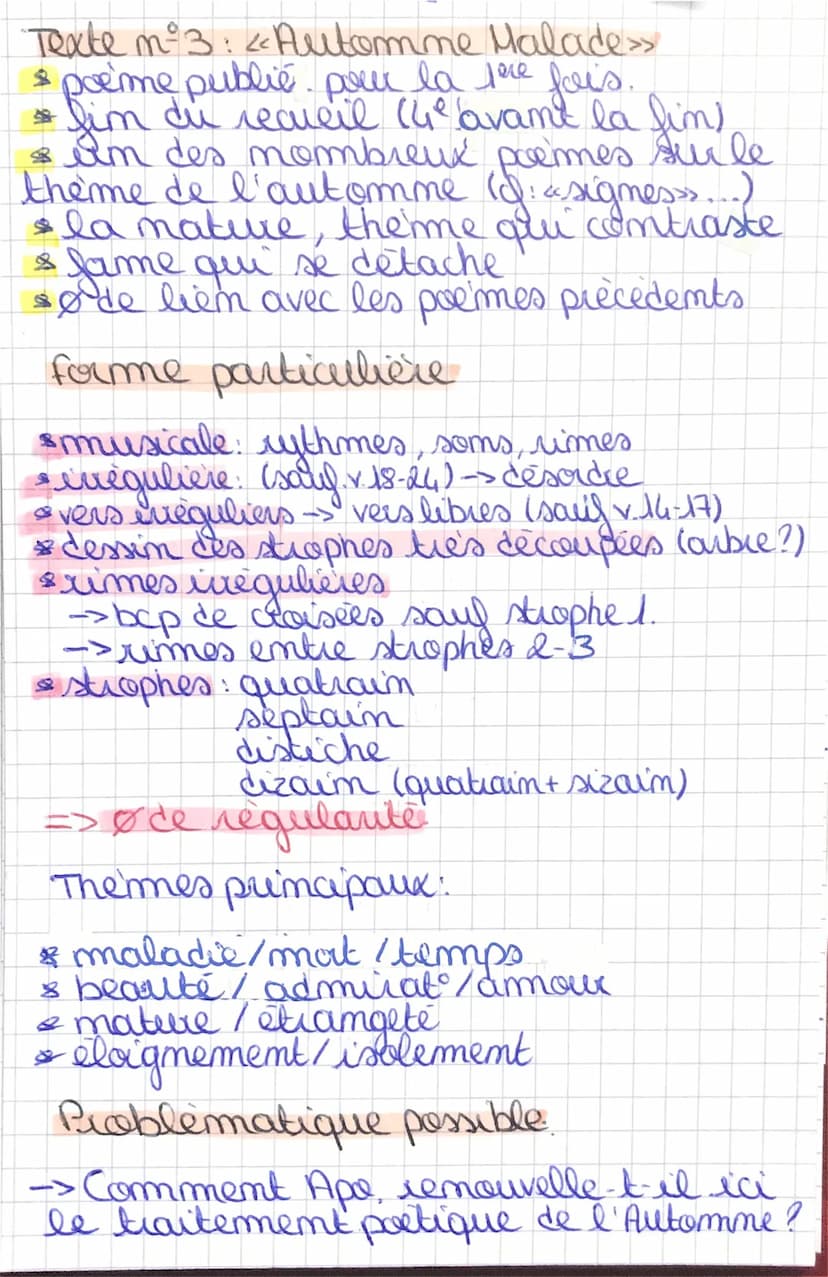 Texte n°3 : «Automne Malade»
* poème publié pour la 1ère fois.
* fin du recueil (4e avant la fin)
* un des nombreux poèmes sur le
thème de l'automne (cf: «signes»...)
* la nature, thème qui contraste
* forme qui se détache
* ∅ de lien avec les poèmes précédents
forme particulière
* musicale : rythmes, sons, rimes
* irrégulière : (sauf v.18-24) -> désordre
* vers irréguliers -> vers libres (sauf v.14-17)
* dessin des strophes très découpées (arbre?)
* rimes irrégulières
-> bcp de croisées sauf strophe 1.
-> rimes entre strophes 2-3
* strophes : quatrain
septain
distiche
dizain (quatrain + sizain)
=> ∅ de régularité
Thèmes principaux :
* maladie / mort / temps
* beauté / admirat° / amour
* nature / étrangeté
* éloignement / isolement
Problématique possible:
-> Comment Apo. renouvelle-t-il ici
le traitement poétique de l'Automne ?